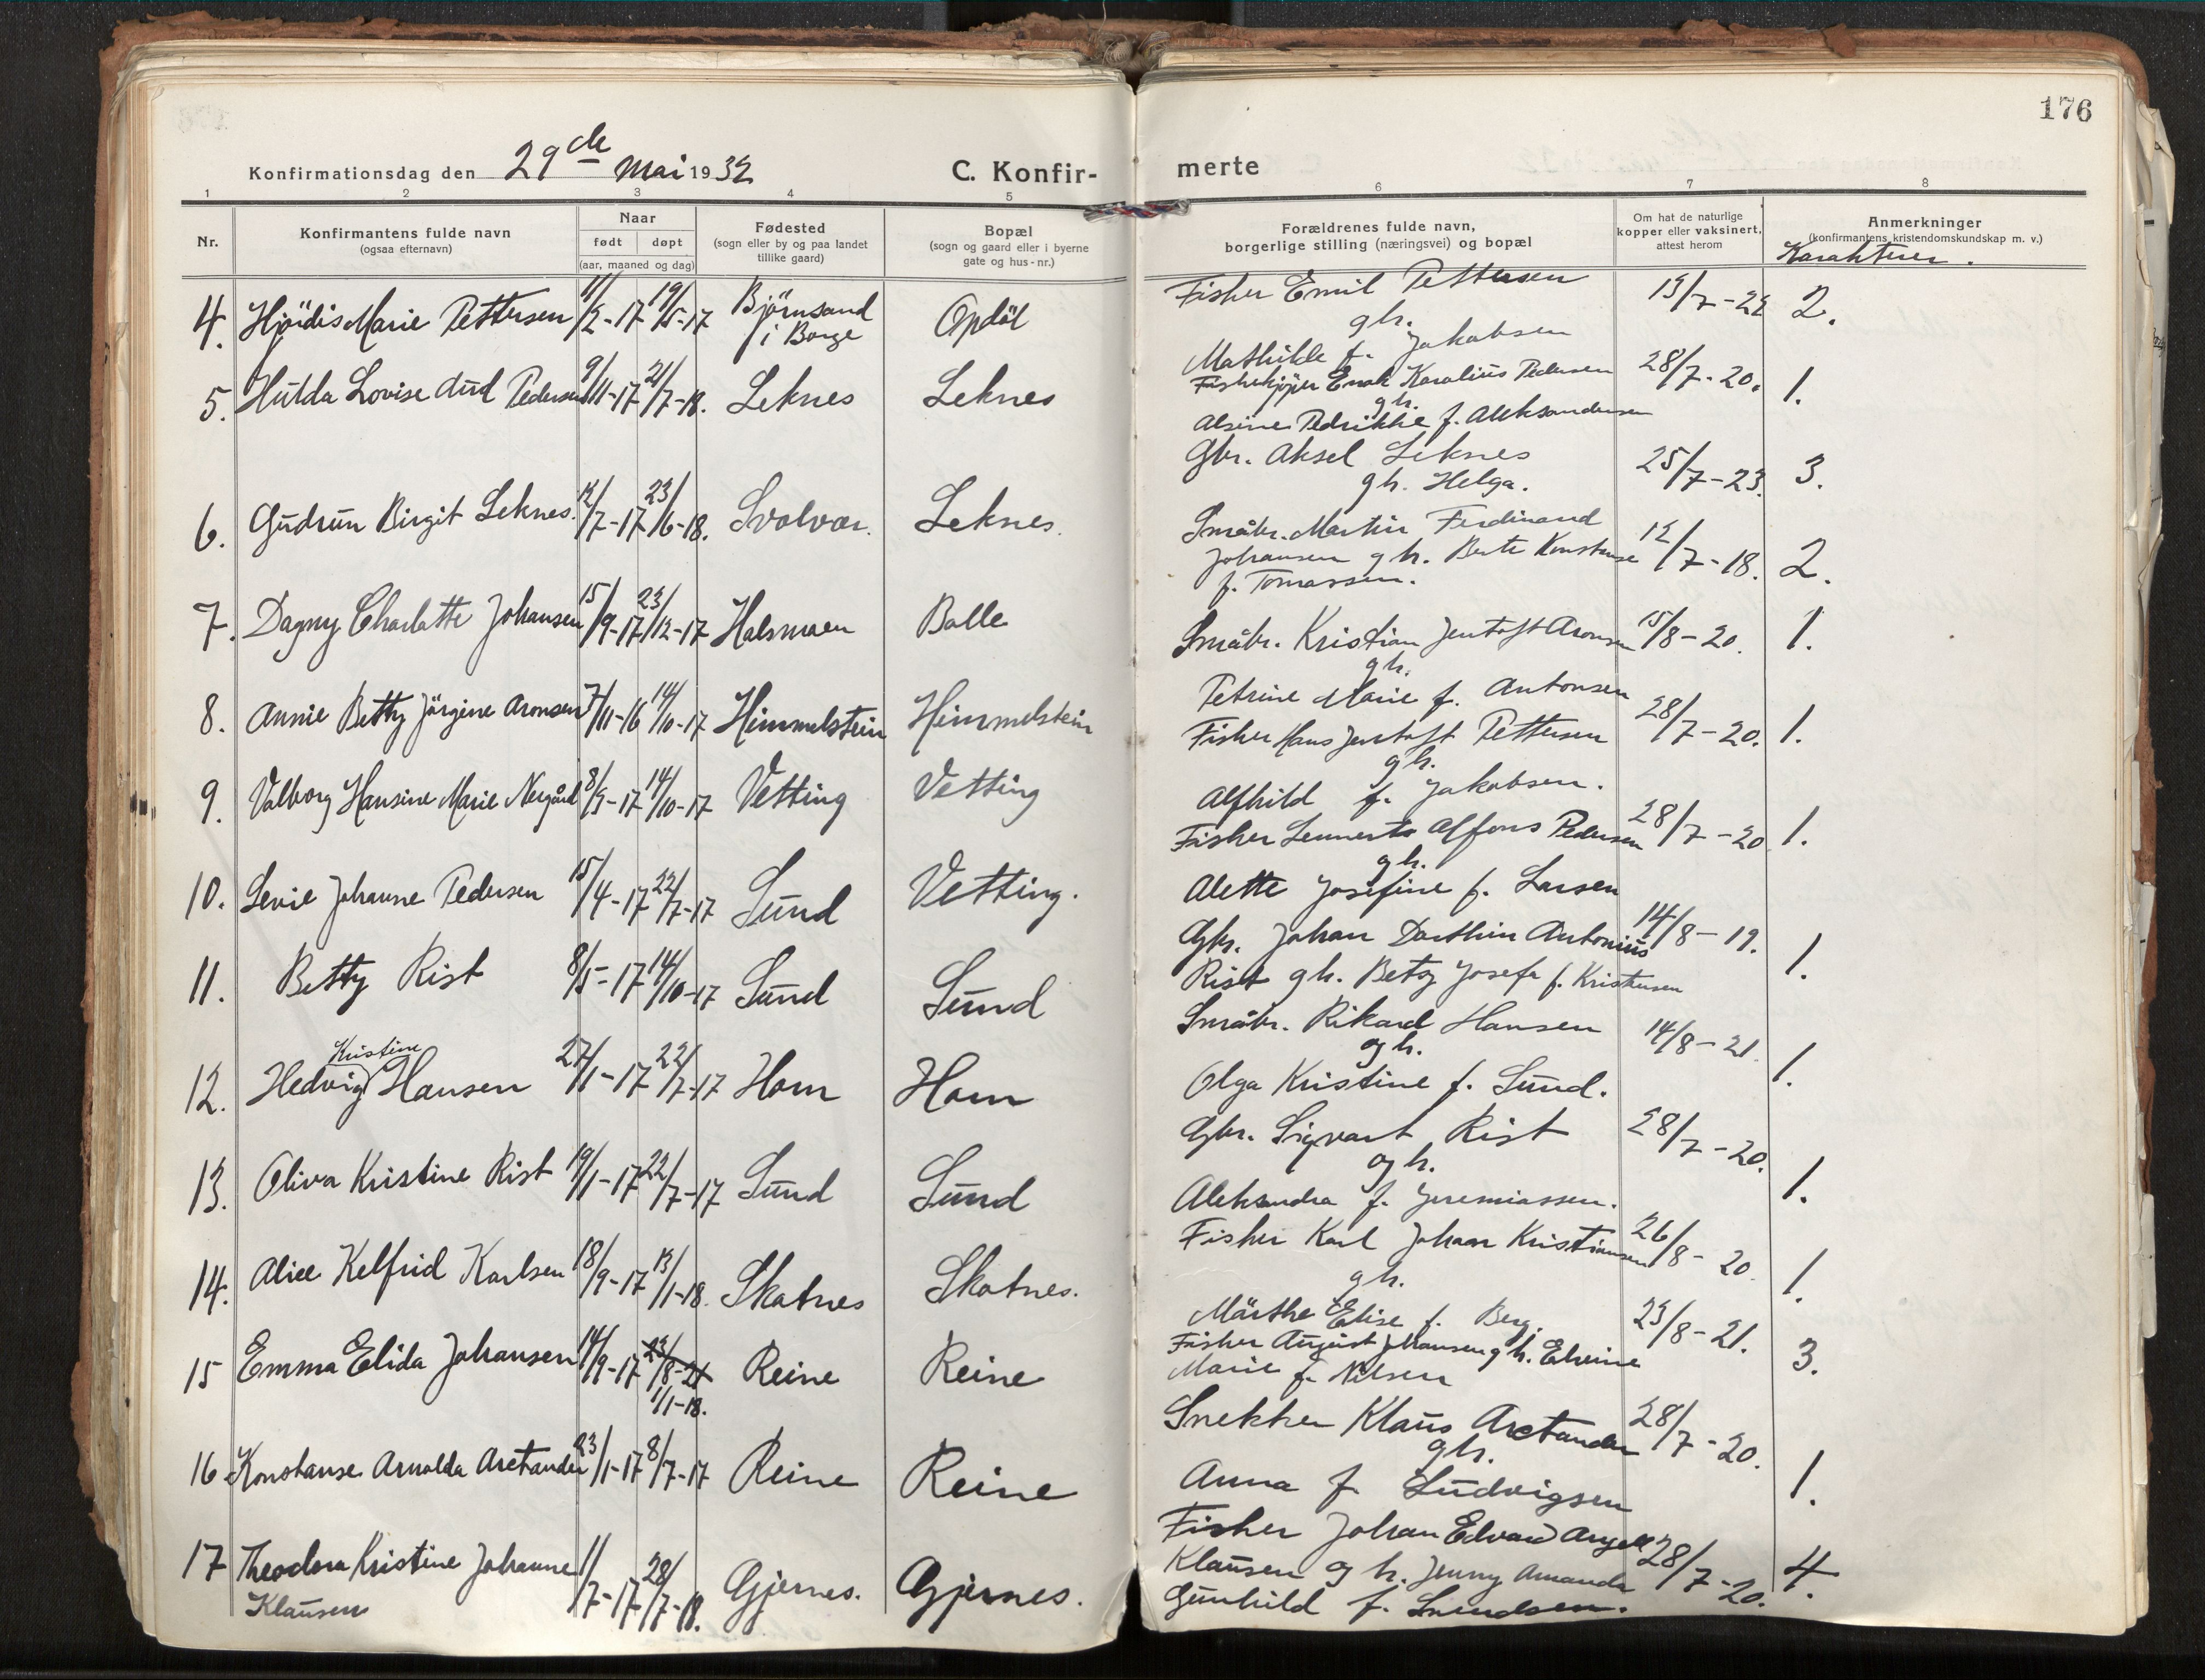 176
Konfirmationsdag den 29de Mai 1932
C. Konfirmerte
1 2 3 4 5 6 7 8
Nr.
Konfirmantens fulde navn
(ogsaa efternavn)
Naar
født døpt
(aar, maaned og dag)
Fødested
(sogn eller by og paa landet
tillike gaard)
Bopæl
(sogn og gaard eller i byerne
gate og hus-nr.)
Forældrenes fulde navn,
borgerlige stilling (næringsvei) og bopæl
Om hat de naturlige
kopper eller vaksinert,
attest herom
Anmerkninger
(konfirmantens kristendomskundskap m. v.)
Karakterer.
4. Hjördis Marie Pettersen 11/2-17 19/5-17 Björnsand
i Borge
Opdöl
Fisker Emil Pettersen
g h.
Mathilde f. Jakobsen
13/7-22 2.
5. Hulda Lovise Aud Pedersen 9/11-17 21/7-18. Leknes Leknes
Fiskekjöper Enok Karolius Pedersen
g h.
Alsine Pedrikke f. Aleksandersen
28/7-20. 1.
6. Gudrun Birgit Leknes. 12/7-17 23/6-18. Svolvær. Leknes.
Gbr. Aksel Leknes
g h. Helga.
25/7-23. 3.
7. Dagny Charlotte Johansen 15/9-17 23/12-17 Halsmoen Balle
Småbr. Martin Ferdinand
Johansen g h. Berte Konstanse
f. Tomassen.
12/7-18. 2.
8. Annie Betty Jörgine Aronsen 7/11-16 14/10-17 Himmelstein Himmelstein
Småbr. Kristian Jentoft Aronsen
g h.
Petrine Marie f. Antonsen
15/8-20. 1.
9. Valborg Hansine Marie Nergård 8/5-17 14/10-17 Vetting Vetting
Fisker Hans Jentoft Pettersen
g h.
Alfhild f. Jakobsen.
28/7-20. 1.
10. Levie Johanne Pedersen 15/4-17 22/7-17 Sund Vetting.
Fisker Lennerts Alfons Pedersen
g h.
Alette Josefine f. Larsen
28/7-20 1.
11. Betty Rist 8/5-17 14/10-17 Sund Sund
Gbr. Johan Dorthin Antonius
Rist g h. Betzy Josefa f. Kristensen
14/8-19. 1.
12. Hedvig Kristine Hansen 27/1-17 22/7-17 Horn Horn
Småbr. Rikard Hansen
og h.
Olga Kristine f. Sund.
14/8-21. 1.
13. Oliva Kristine Rist 19/1-17 22/7-17 Sund Sund
Gbr. Sigvart Rist
og h.
Aleksandra f. Jeremiassen.
28/7-20. 1.
14. Alice Kelfrid Karlsen 18/9-17 13/1-18. Skotnes Skotnes.
Fisker Karl Johan Kristiansen
g h.
Märthe Elise f. Berg.
26/8-20. 1.
15 Emma Elida Johansen 14/9-17 23/8-21
1/1-18.
Reine Reine
Fisker August Johansen g h. Edvine
Marie f. Nilsen
23/8-21. 3.
16. Konstanse Arnolda Arctander 23/1-17 8/7-17 Reine Reine
Snekker Klaus Arctander
g h.
Anna f. Ludvigsen
28/7-20. 1.
17 Theodora Kristine Johanne
Klausen
11/7-17 28/7-18. Gjernes. Gjernes.
Fisker Johan Edvard Angell
Klausen og h. Jenny Amanda
Gunhild f. Svendsen.
28/7-20. 4.